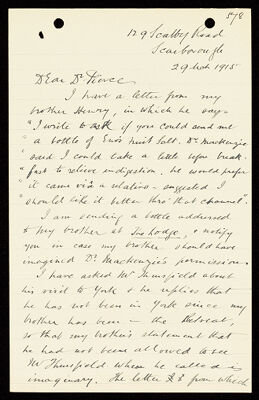 578
129 Scalby Road
Scarborough
29 Oct 1915
Dear Dr Pierce
I have a letter from my
brother Henry, in which he says-
"I wrote to ask if you could send me
" a bottle of Eno's Fruit Salt. Dr Mackenzie
" said I could take a little before break-
" fast to relieve indigestion, he would prefer
" it came via a relation - suggested I
" should like it better thro' that channel".
I am sending a bottle addressed
to my brother at The Lodge, & notify
you in case my brother should have
imagined Dr Mackenzie's permission.
I have asked Mr Thurnfield about
his visit to York & he replies that
he has not been in York since my
brother has been in the Retreat,
so that my brother's statement that
he had not been allowed to see
Mr Thurnfield when he called is
imaginary. The letter from which